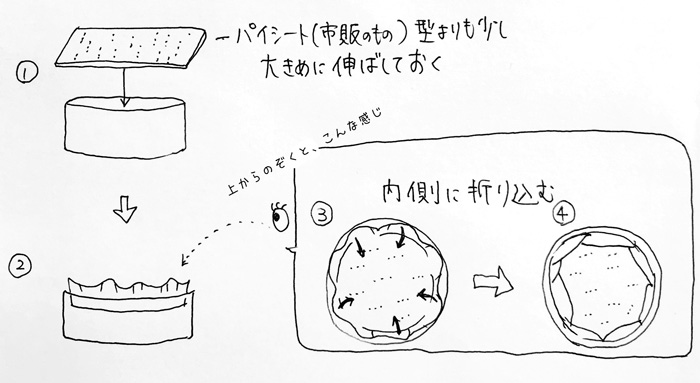 ①
パイシート(市販のもの) 型よりも少し
大きめに伸ばしておく
上からのぞくと、こんな感じ
②
内側に折り込む
③
④